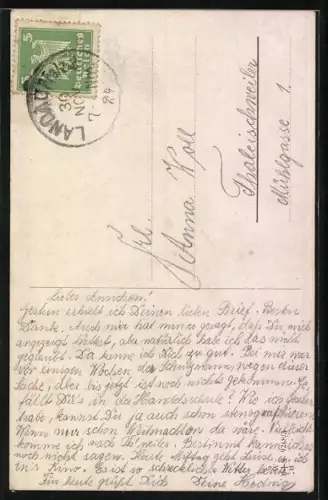 5
Deutsches Reich
LANDAU (Pfalz)
30
NOV
7-8
24
Frl.
Anna Koll
Thaleischweiler
Mühlgasse 1.
Liebes Annchen!
Gestern erhielt ich Deinen lieben Brief. Besten
Dank. Auch mir hat man gesagt, daß Du mich
angezeigt hättest, aber natürlich habe ich das nicht
geglaubt. Da kenne ich Dich zu gut. Bei mir war
vor einigen Wochen der Schutzmann, wegen dieser
Sache, aber bis jetzt ist noch nichts gekommen. Ge-
fällt Dir's in die Handelschule? Wie ich gesehen
habe, kannst Du ja auch schon stenographieren.
Wenn nur schon Weihnachten da wäre. Vielleicht
komme ich nach Th.weiler. Bestimmt kann ich es
noch nicht sagen. Heute Mittag geht Luise u. ich
in's Kino. Es ist so schreckliches
Für heute grüßt Dich Deine Hedwig